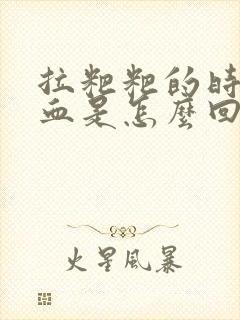 拉粑粑的時
血是怎麼回
火星風暴